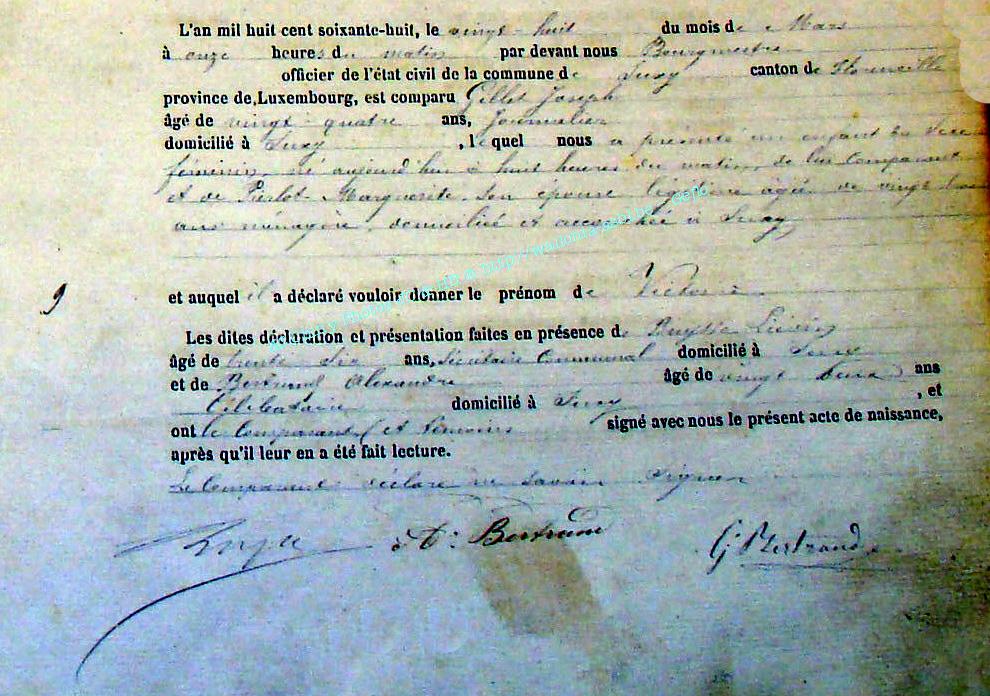 L'an mil huit cent soixante-huit, le vingt-huit du mois de Mars
à onze heures du matin par devant nous Bourgmestre
officier de l'état civil de la commune de Suxy canton de Florenville
province de Luxembourg, est comparu Gillet Joseph
âgé de vingt-quatre ans, Journalier
domicilié à Suxy, lequel nous a présenté un enfant du sexe
féminin, né aujourd'hui à huit heures du matin, de lui Comparant
et de Pierlot Marguerite son épouse légitime âgée de vingt
ans ménagère, domiciliée et accouchée à Suxy
9
et auquel il a déclaré vouloir donner le prénom de
Les dites déclaration et présentation faites en présence de
âgé de trente six ans, Secrétaire Communal domicilié à Suxy
et de Bertrand Alexandre âgé de vingt deux ans
Célibataire domicilié à Suxy, et
ont le Comparant et témoins signé avec nous le présent acte de naissance,
après qu'il leur en a été fait lecture.
Le Comparant déclare ne savoir signer
A: Bertrand G Bertrand